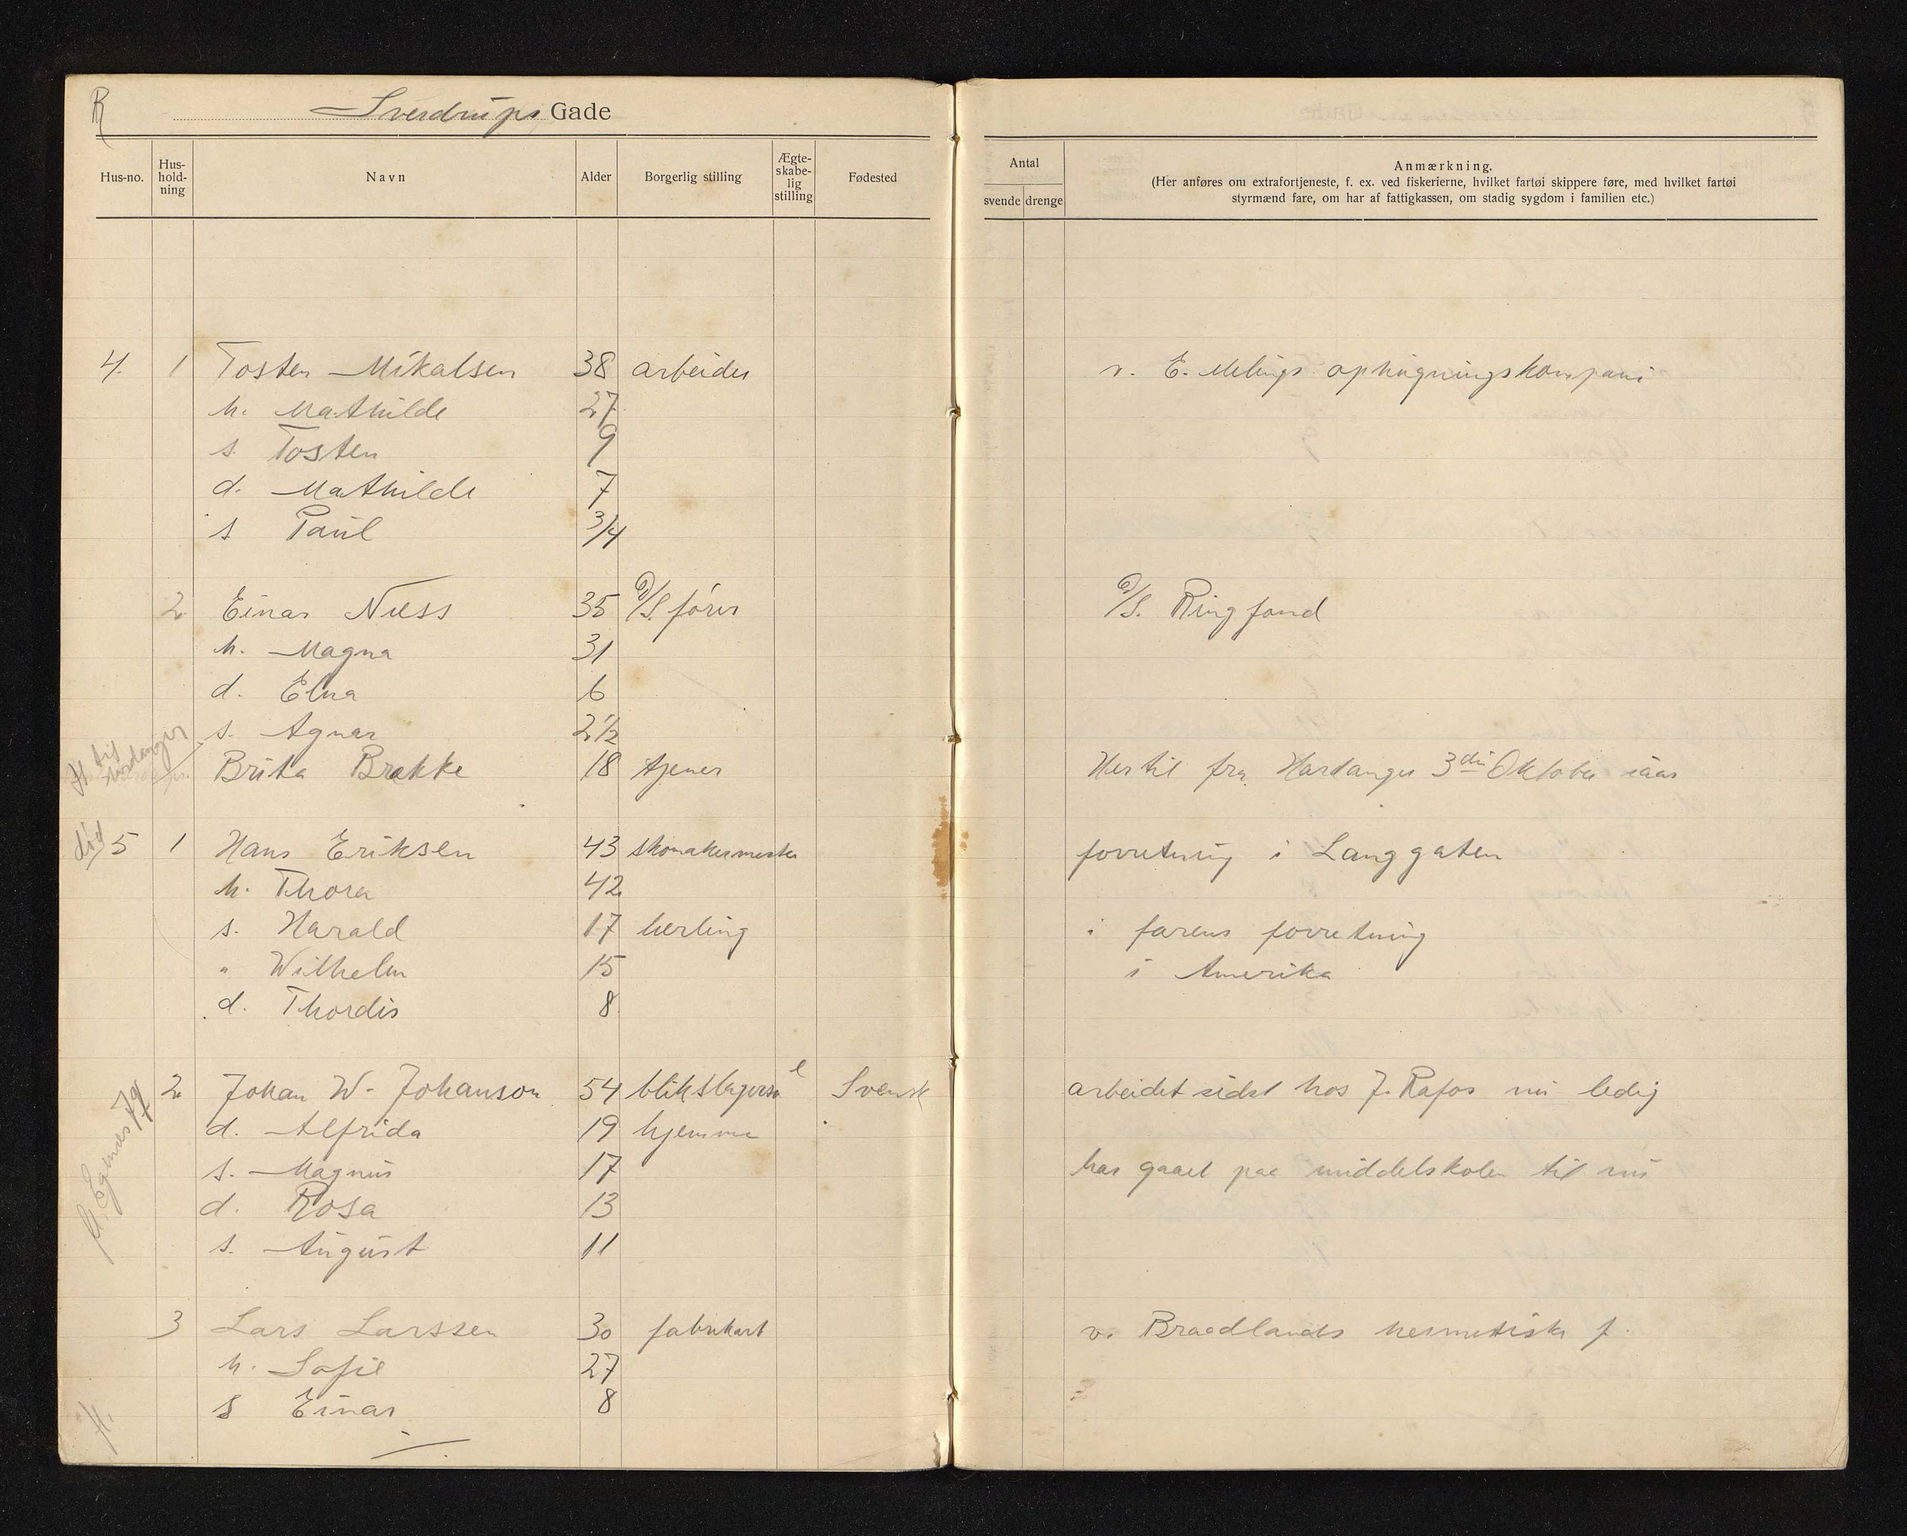 R
Sverdrups Gade
Hus-no. Hus-hold-ning Navn Alder Borgerlig stilling Ægte-skabe-lig stilling Fødested
Antal svende drenge
Anmærkning.
(Her anføres om extrafortjeneste, f. ex. ved fiskerierne, hvilket fartøi skippere føre, med hvilket fartøi
styrmænd fare, om har af fattigkassen, om stadig sygdom i familien etc.)
4. 1 Tosten Mikalsen 38 arbeider v. E. Melings ophugningskompani
h. Mathilde 27
s. Tosten 9
d. Mathilde 7
s Paul 3/4
2 Einar Næss 35 D/S. fører D/S. Ringfond
h. Magna 31
d. Elna 6
s. Agnar 2 1/2
H til Hardanger Brita Brække 18 tjener Her til fra Hardanger 3die Oktober iaar
død 5 1 Hans Eriksen 43 skomakermester forretning i Langgaten
h. Thora 42
s. Harald 17 lærling i farens forretning
" Wilhelm 15 i Amerika
d. Thordis 8
2 Johan W. Johanson 54 blikslagersv e Svensk arbeidet sidst hos J. Rafos nu ledig
d. Alfrida 19 hjemme
s. Magnus 17 har gaaet paa middelskolen til nu
d. Rosa 13
s. August 11
3 Lars Larssen 30 fabrikarb v. Braadlands hermetiske f.
h. Sofie 27
H. s Einar 8